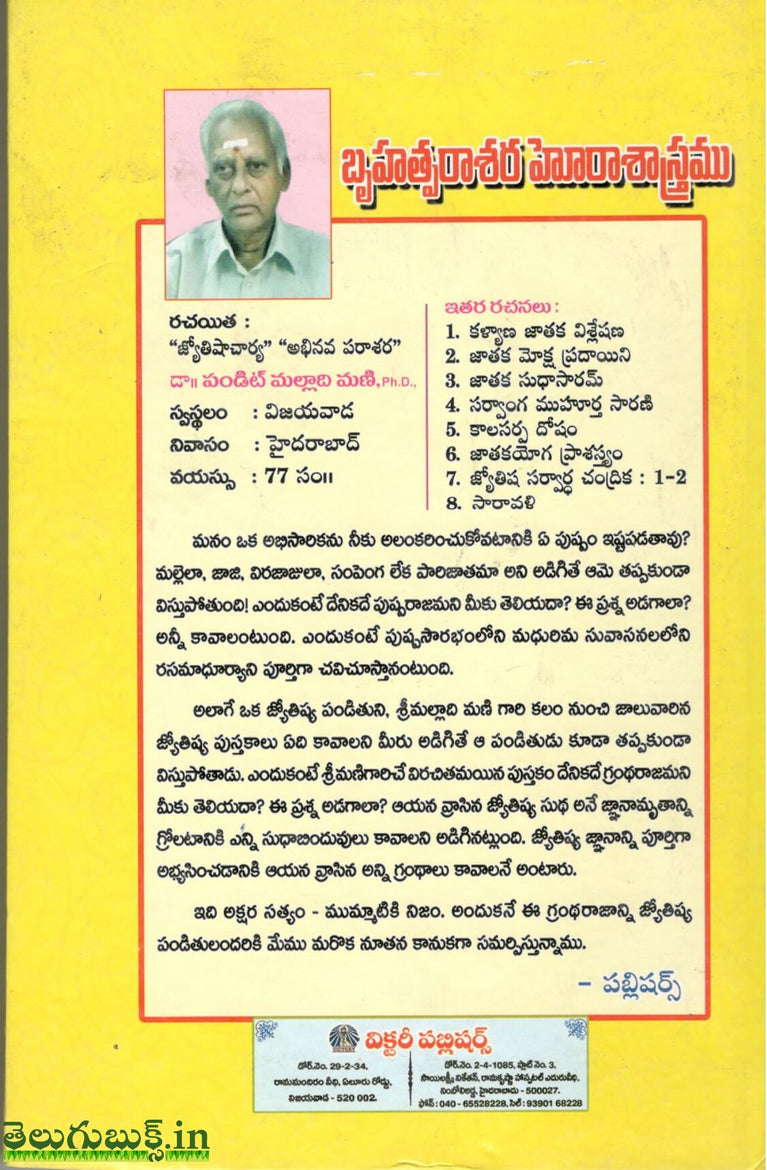 బృహత్పరాశర హెూరాశాస్త్రము
రచయిత :
“జ్యోతిషాచార్య” “అభినవ పరాశర”
డా॥ పండిట్ మల్లాది మణి, Ph.D.,
స్వస్థలం : విజయవాడ
నివాసం : హైదరాబాద్
వయస్సు : 77 సం॥
ఇతర రచనలు :
1. కళ్యాణ జాతక విశ్లేషణ
2. జాతక మోక్ష ప్రదాయిని
3. జాతక సుధాసారమ్
4. సర్వాంగ ముహూర్త సారణి
5. కాలసర్ప దోషం
6. జాతకయోగ ప్రాశస్త్యం
7. జ్యోతిష సర్వార్థ చంద్రిక : 1-2
8. సారావళి
మనం ఒక అభిసారికను నీకు అలంకరించుకోవటానికి ఏ పుష్పం ఇష్టపడతావు?
మల్లెలా, జాజి, విరజాజులా, సంపెంగ లేక పారిజాతమా అని అడిగితే ఆమె తప్పకుండా
విస్తుపోతుంది! ఎందుకంటే దేనికదే పుష్పరాజమని మీకు తెలియదా? ఈ ప్రశ్న అడగాలా?
అన్నీ కావాలంటుంది. ఎందుకంటే పుష్పసౌరభంలోని మధురిమ సువాసనలలోని
రసమాధూర్యాని పూర్తిగా చవిచూస్తానంటుంది.
అలాగే ఒక జ్యోతిష్య పండితుని, శ్రీమల్లాది మణి గారి కలం నుంచి జాలువారిన
జ్యోతిష్య పుస్తకాలు ఏది కావాలని మీరు అడిగితే ఆ పండితుడు కూడా తప్పకుండా
విస్తుపోతాడు. ఎందుకంటే శ్రీమణిగారిచే విరచితమయిన పుస్తకం దేనికదే గ్రంథరాజమని
మీకు తెలియదా? ఈ ప్రశ్న అడగాలా? ఆయన వ్రాసిన జ్యోతిష్య సుధ అనే జ్ఞానామృతాన్ని
గ్రోలటానికి ఎన్ని సుధాబిందువులు కావాలని అడిగినట్లుంది. జ్యోతిష్య జ్ఞానాన్ని పూర్తిగా
అభ్యసించడానికి ఆయన వ్రాసిన అన్ని గ్రంథాలు కావాలనే అంటారు.
ఇది అక్షర సత్యం - ముమ్మాటికి నిజం. అందుకనే ఈ గ్రంథరాజాన్ని జ్యోతిష్య
పండితులందరికి మేము మరొక నూతన కానుకగా సమర్పిస్తున్నాము.
– పబ్లిషర్స్
VICTORY విక్టరీ పబ్లిషర్స్
డోర్.నెం. 29-2-34,
రామమందిరం వీధి, ఏలూరు రోడ్డు,
విజయవాడ - 520 002.
డోర్.నెం. 2-4-1085, ప్లాట్ నెం. 3,
సాయిలక్ష్మీ నికేతన్, రామకృష్ణా హాస్పటల్ ఎదురువీధి,
నింబోలిఅడ్డ, హైదరాబాదు - 500027.
ఫోన్ : 040 - 65528228, సెల్ : 93901 68228
తెలుగుబుక్స్.in